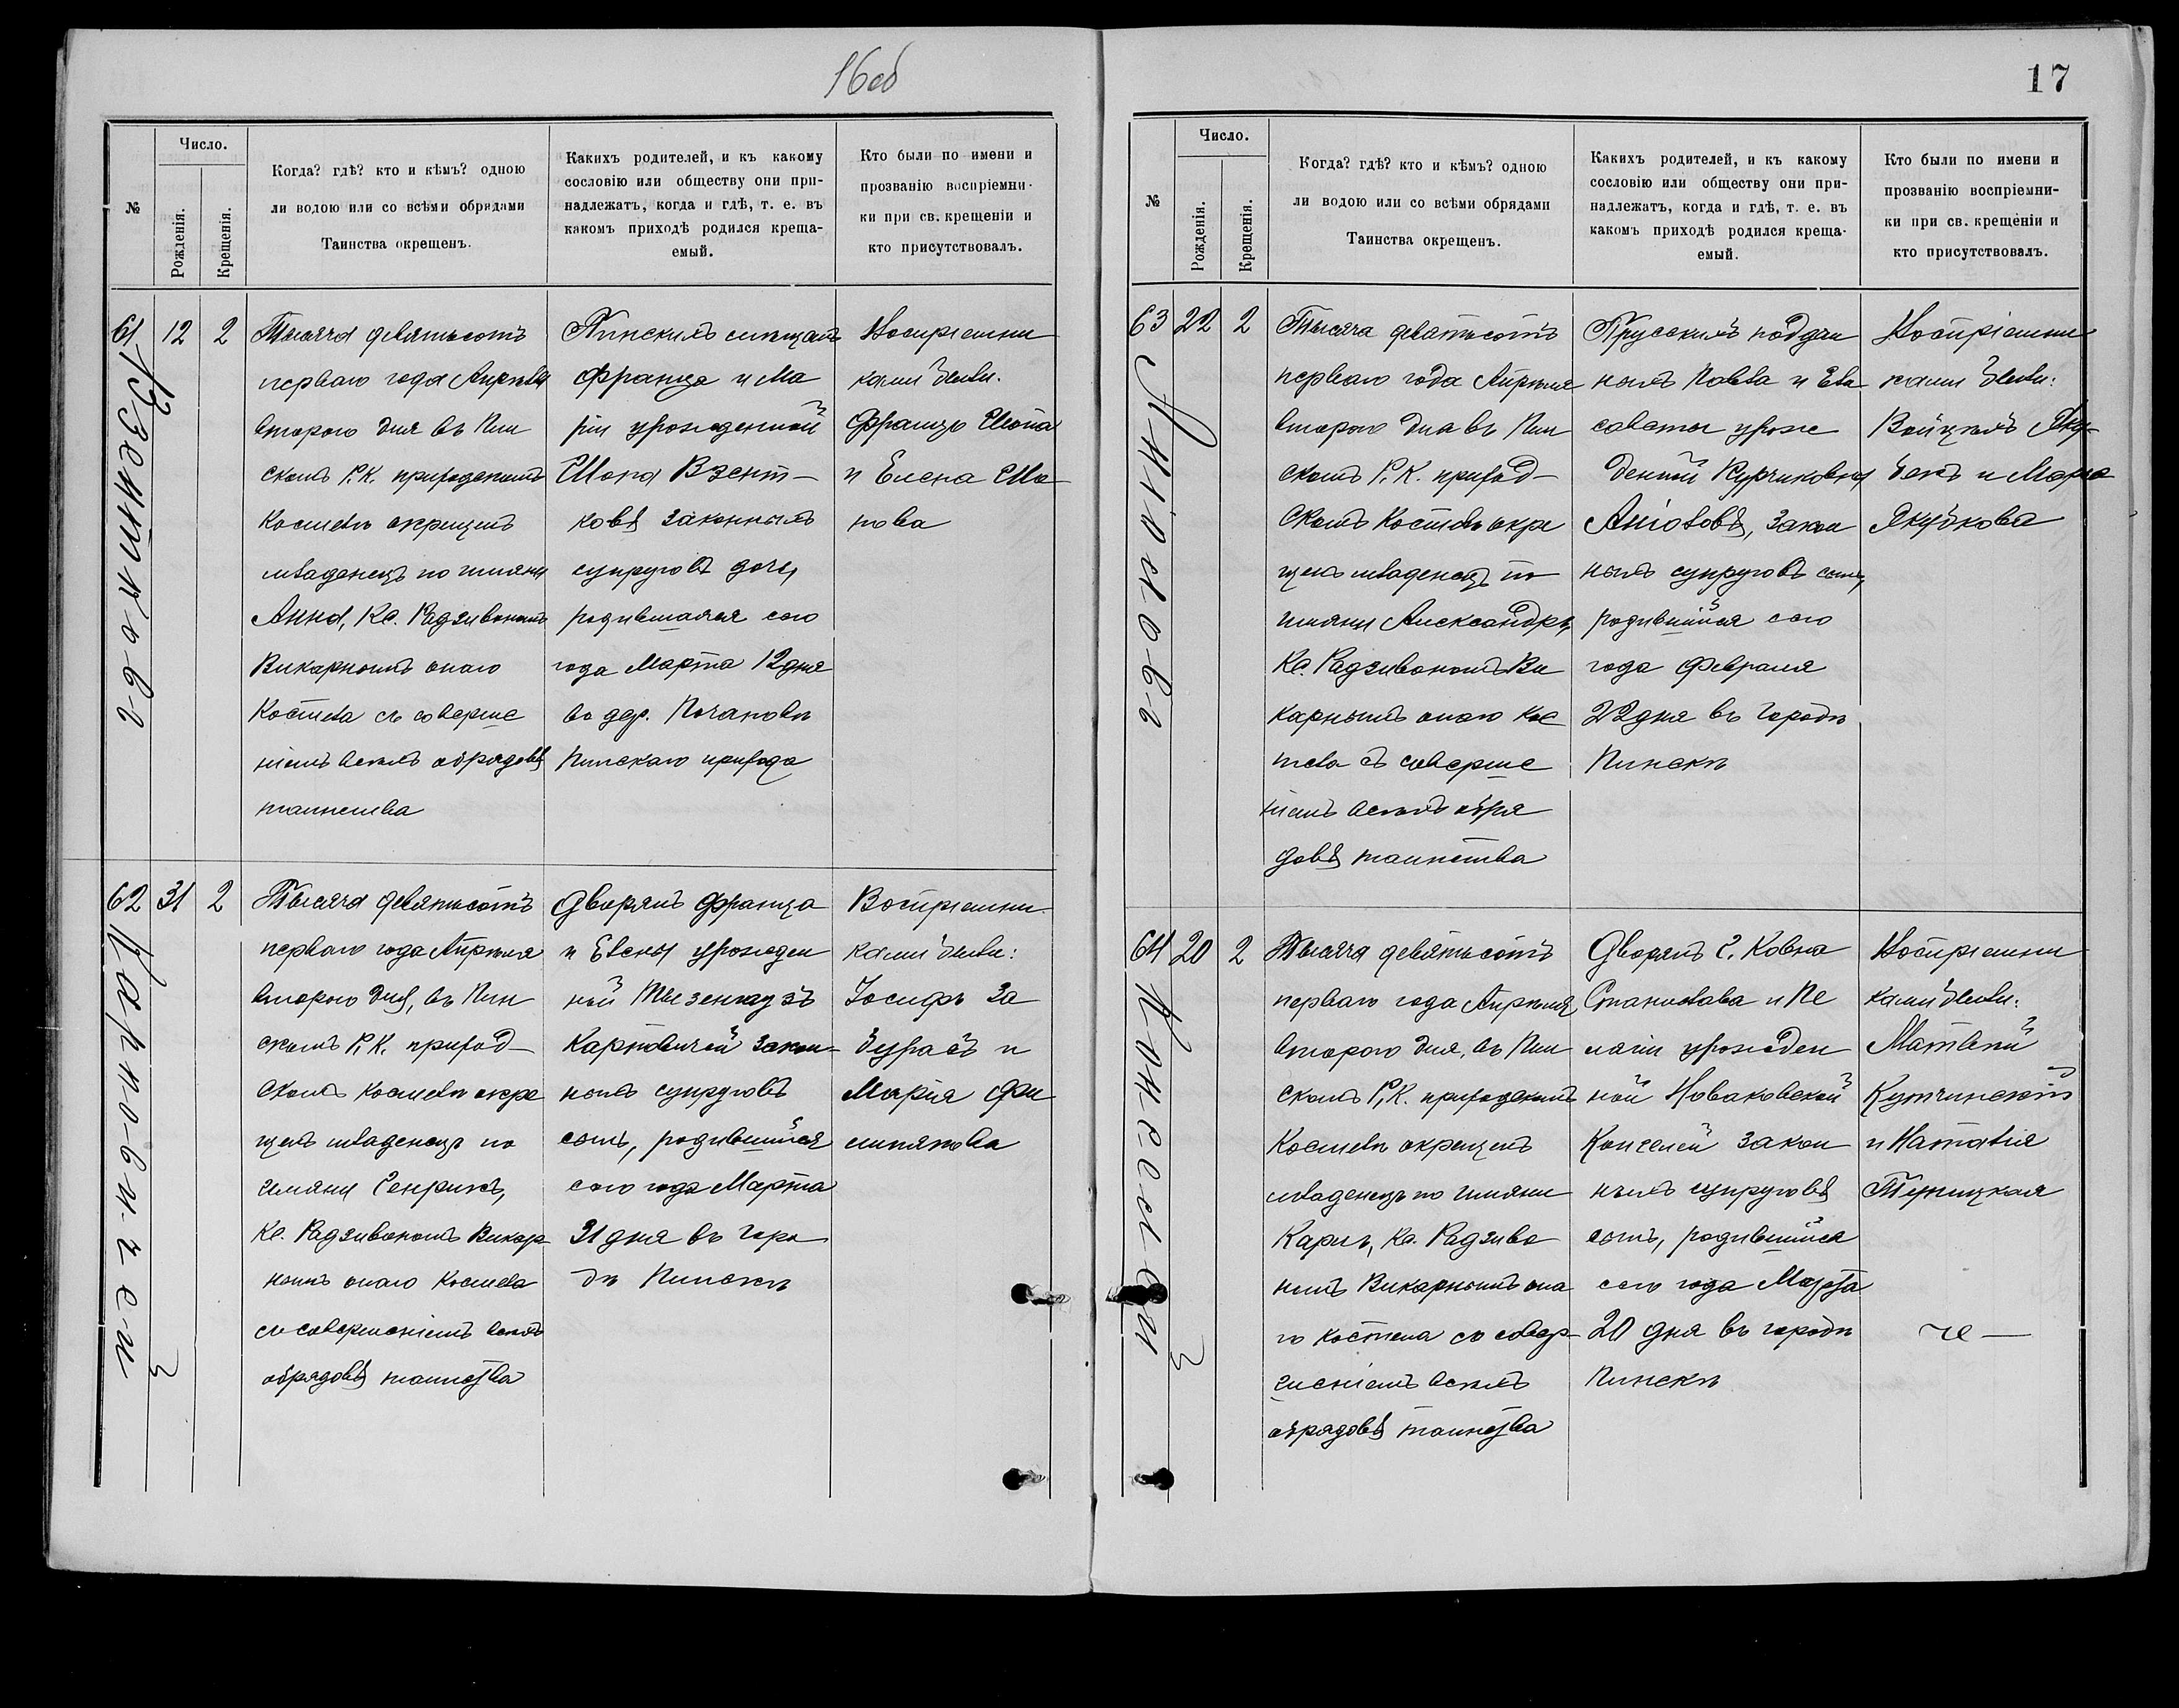 16 об
№
Число.
Рожденія.
Крещенія.
Когда? гдѣ? кто и кѣмъ? одною
ли водою или со всѣми обрядами
Таинства окрещенъ.
Какихъ родителей, и къ какому
сословію или обществу они при-
надлежатъ, когда и гдѣ, т. е. въ
какомъ приходѣ родился креща-
емый.
Кто были по имени и
прозванію воспріемни-
ки при св. крещеніи и
кто присутствовалъ.
61
12
2
Взентковъ
Тысяча девятьсотъ
перваго года Апрѣля
второго дня въ Пин
скомъ Р. К. приходскомъ
Костелѣ окрещенъ
младенецъ по имяни
Анна, Кс. Радзивономъ
Викарнымъ онаго
Костела съ соверше
ніемъ всѣхъ обрядовъ
таинства
Пинскихъ мѣщанъ
Франца и Ма
ріи урожденной
Шопа Взент-
ковъ законныхъ
супруговъ дочь,
родившаяся сего
года Марта 12 дня
во дер. Почаповѣ
Пинскаго прихода
Воспріемни
ками были:
Францъ Шопа
и Елена Шо
пова
62
31
2
Карповичей
Тысяча девятьсотъ
перваго года Апрѣля
второго дня, въ Пин
скомъ Р. К. приход-
скомъ Костелѣ окре
щенъ младенецъ по
имяни Генрикъ,
Кс. Радзивономъ Викар
нымъ онаго Костела
съ совершеніемъ всѣхъ
обрядовъ таинства
Дворянъ Франца
и Елены урожден
ной Тызенгаузъ
Карповичей закон-
ныхъ супруговъ
сынъ, родившійся
сего года Марта
31 дня въ горо
дѣ Пинскѣ
Воспріемни
ками были:
Іосифъ За
бурасъ и
Марія Фи
липпова
17
№
Число.
Рожденія.
Крещенія.
Когда? гдѣ? кто и кѣмъ? одною
ли водою или со всѣми обрядами
Таинства окрещенъ.
Какихъ родителей, и къ какому
сословію или обществу они при-
надлежатъ, когда и гдѣ, т. е. въ
какомъ приходѣ родился креща-
емый.
Кто были по имени и
прозванію воспріемни-
ки при св. крещеніи и
кто присутствовалъ.
63
22
2
Аніоловъ
Тысяча девятьсотъ
перваго года Апрѣля
второго дня въ Пин
скомъ Р. К. приход-
скомъ Костелѣ окре
щенъ младенецъ по
имяни Александръ,
Кс. Радзивономъ Ви
карнымъ онаго Кос
тела съ соверше
ніемъ всѣхъ обря
довъ таинства
Прусскихъ поддан
ныхъ Павла и Ели
саветы урож
денной Курчиковны
Аніоловъ, закон
ныхъ супруговъ сынъ,
родившійся сего
года Февраля
22 дня въ городѣ
Пинскѣ
Воспріемни
ками были:
Войцѣхъ Яку-
бекъ и Марія
Якубкова
64
20
2
Конселей
Тысяча девятьсотъ
перваго года Апрѣля
второго дня, въ Пин
скомъ Р. К. приходскомъ
Костелѣ окрещенъ
младенецъ по имяни
Карлъ, Кс. Радзиво
номъ Викарнымъ она
го костела со совер-
шеніемъ всѣхъ
обрядовъ таинства
Дворянъ г. Ковна
Станислава и Пе
лагіи урожден
ной Новаковской
Конселей закон
ныхъ супруговъ
сынъ, родившійся
сего года Марта
20 дня въ городѣ
Пинскѣ
Воспріемни
ками были:
Матвѣй
Кутчинскій
и Наталія